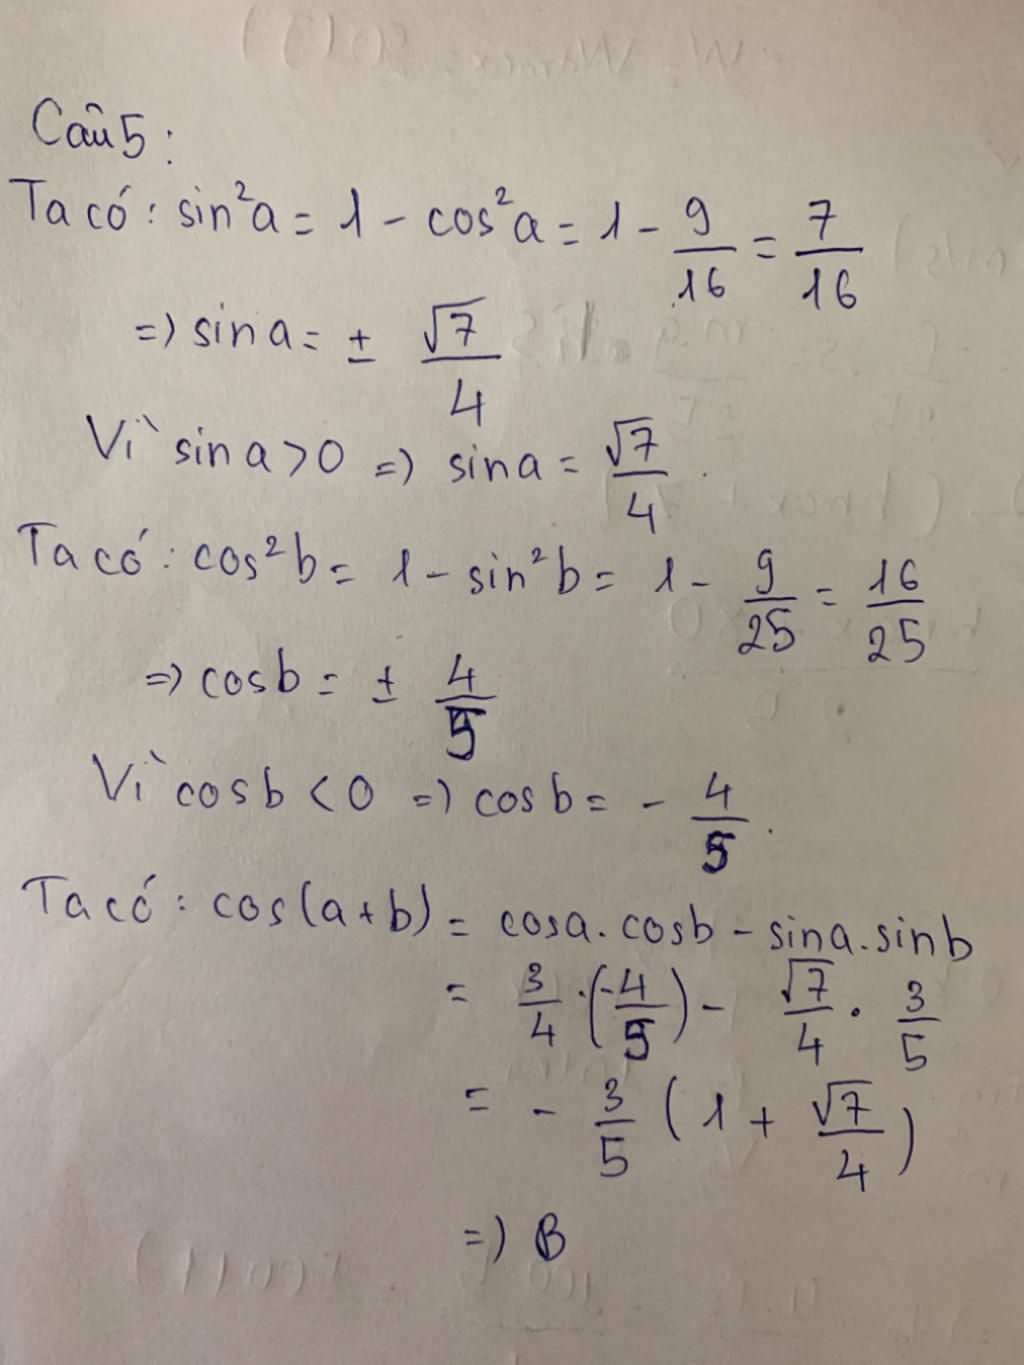 Câu 5 :
Ta có : sin²a = 1 - cos²a = 1 - 9/16 = 7/16
=) sin a = ± √7/4
Vì sin a > 0 =) sin a = √7/4 .
Ta có : cos²b = 1 - sin²b = 1 - 9/25 = 16/25
=) cos b = ± 4/5
Vì cos b < 0 =) cos b = - 4/5 .
Ta có : cos(a+b) = cosa. cosb - sina. sinb
= 3/4 . (-4/5) - √7/4 . 3/5
= - 3/5 ( 1 + √7/4 )
=) B